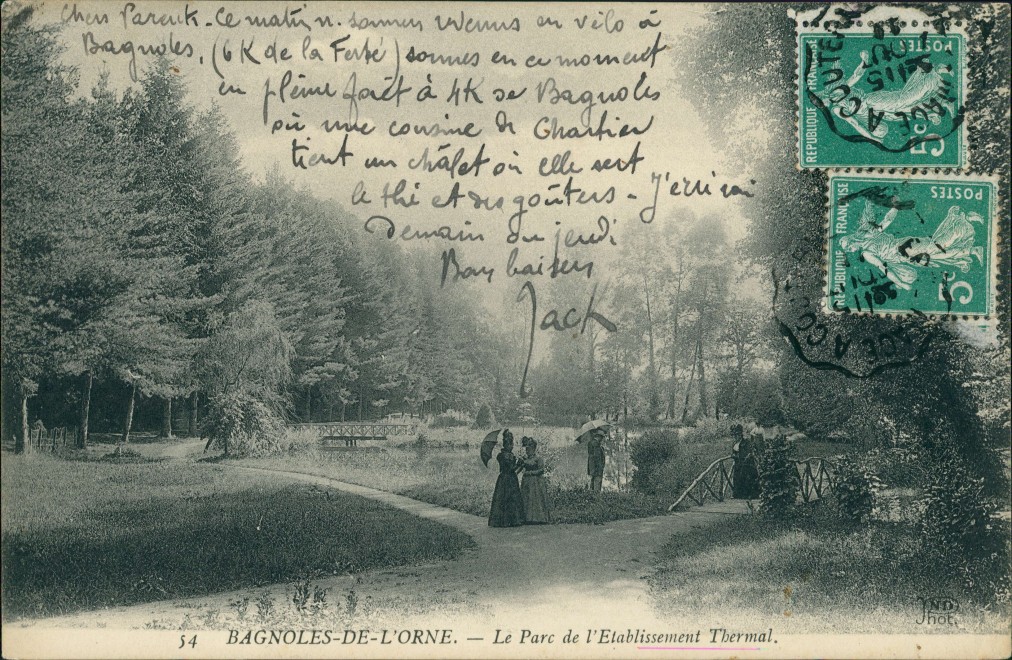 Chers Parents. Ce matin. sommes venus en vélo à
Bagnoles, (6K de la Ferté) sommes en ce moment
en pleine forêt à 4K de Bagnoles
où une cousine de Chartier
tient un châlet où elle sert
le thé et des goûters - J'écrirai
Demain ou jeudi
Bons baisers
Jack
POSTES
REPUBLIQUE FRANÇAISE
5c
POSTES
REPUBLIQUE FRANÇAISE
5
54 BAGNOLES-DE-L'ORNE. — Le Parc de l'Etablissement Thermal.
ND
Phot.